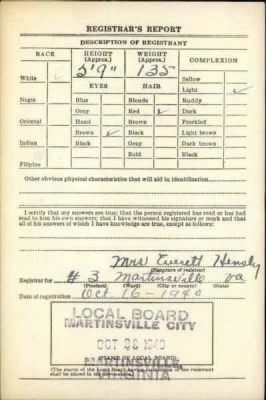 REGISTRAR'S REPORT
DESCRIPTION OF REGISTRANT
RACE HEIGHT (Approx.) WEIGHT (Approx.) COMPLEXION
5'9" 135
White ✓ Sallow
EYES HAIR Light ✓
Negro Blue Blonde Ruddy
Gray Red ✓ Dark
Oriental Hazel Brown Freckled
Brown ✓ Black Light brown
Indian Black Gray Dark brown
Bald Black
Filipino
Other obvious physical characteristics that will aid in identification
I certify that my answers are true; that the person registered has read or has had
read to him his own answers; that I have witnessed his signature or mark and that
all of his answers of which I have knowledge are true, except as follows:
Mrs Everett Hensley
(Signature of registrar)
Registrar for #3 Martinsville Va
(Precinct) (Ward) (City or county) (State)
Date of registration Oct 16-1940
LOCAL BOARD
MARTINSVILLE CITY
OCT 1940
(STAMP OF LOCAL BOARD)
MARTINSVILLE
(The stamp of the Local Board of the registrant
shall be placed in the
VIRGINIA